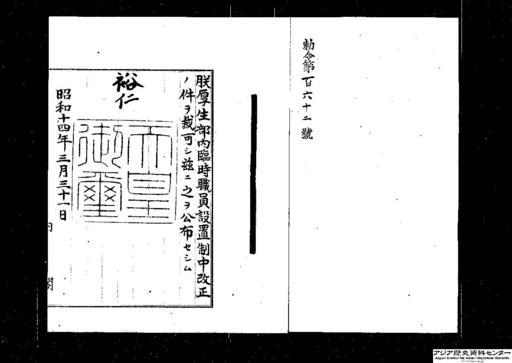 勅令第百六十二號
朕厚生部内臨時職員設置制中改正
ノ件ヲ裁可シ茲ニ之ヲ公布セシム
裕仁
天皇御璽
昭和十四年三月三十一日
内閣
アジア歴史資料センター
Japan Center for Asian Historical Records